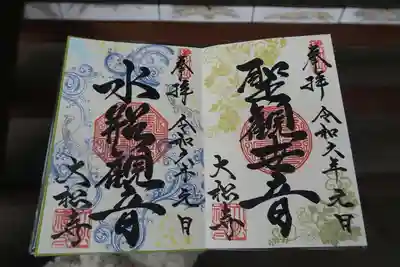 奉拝
聖観世音
令和六年元日
大松寺
奉拝
水船観音
令和六年元日
大松寺